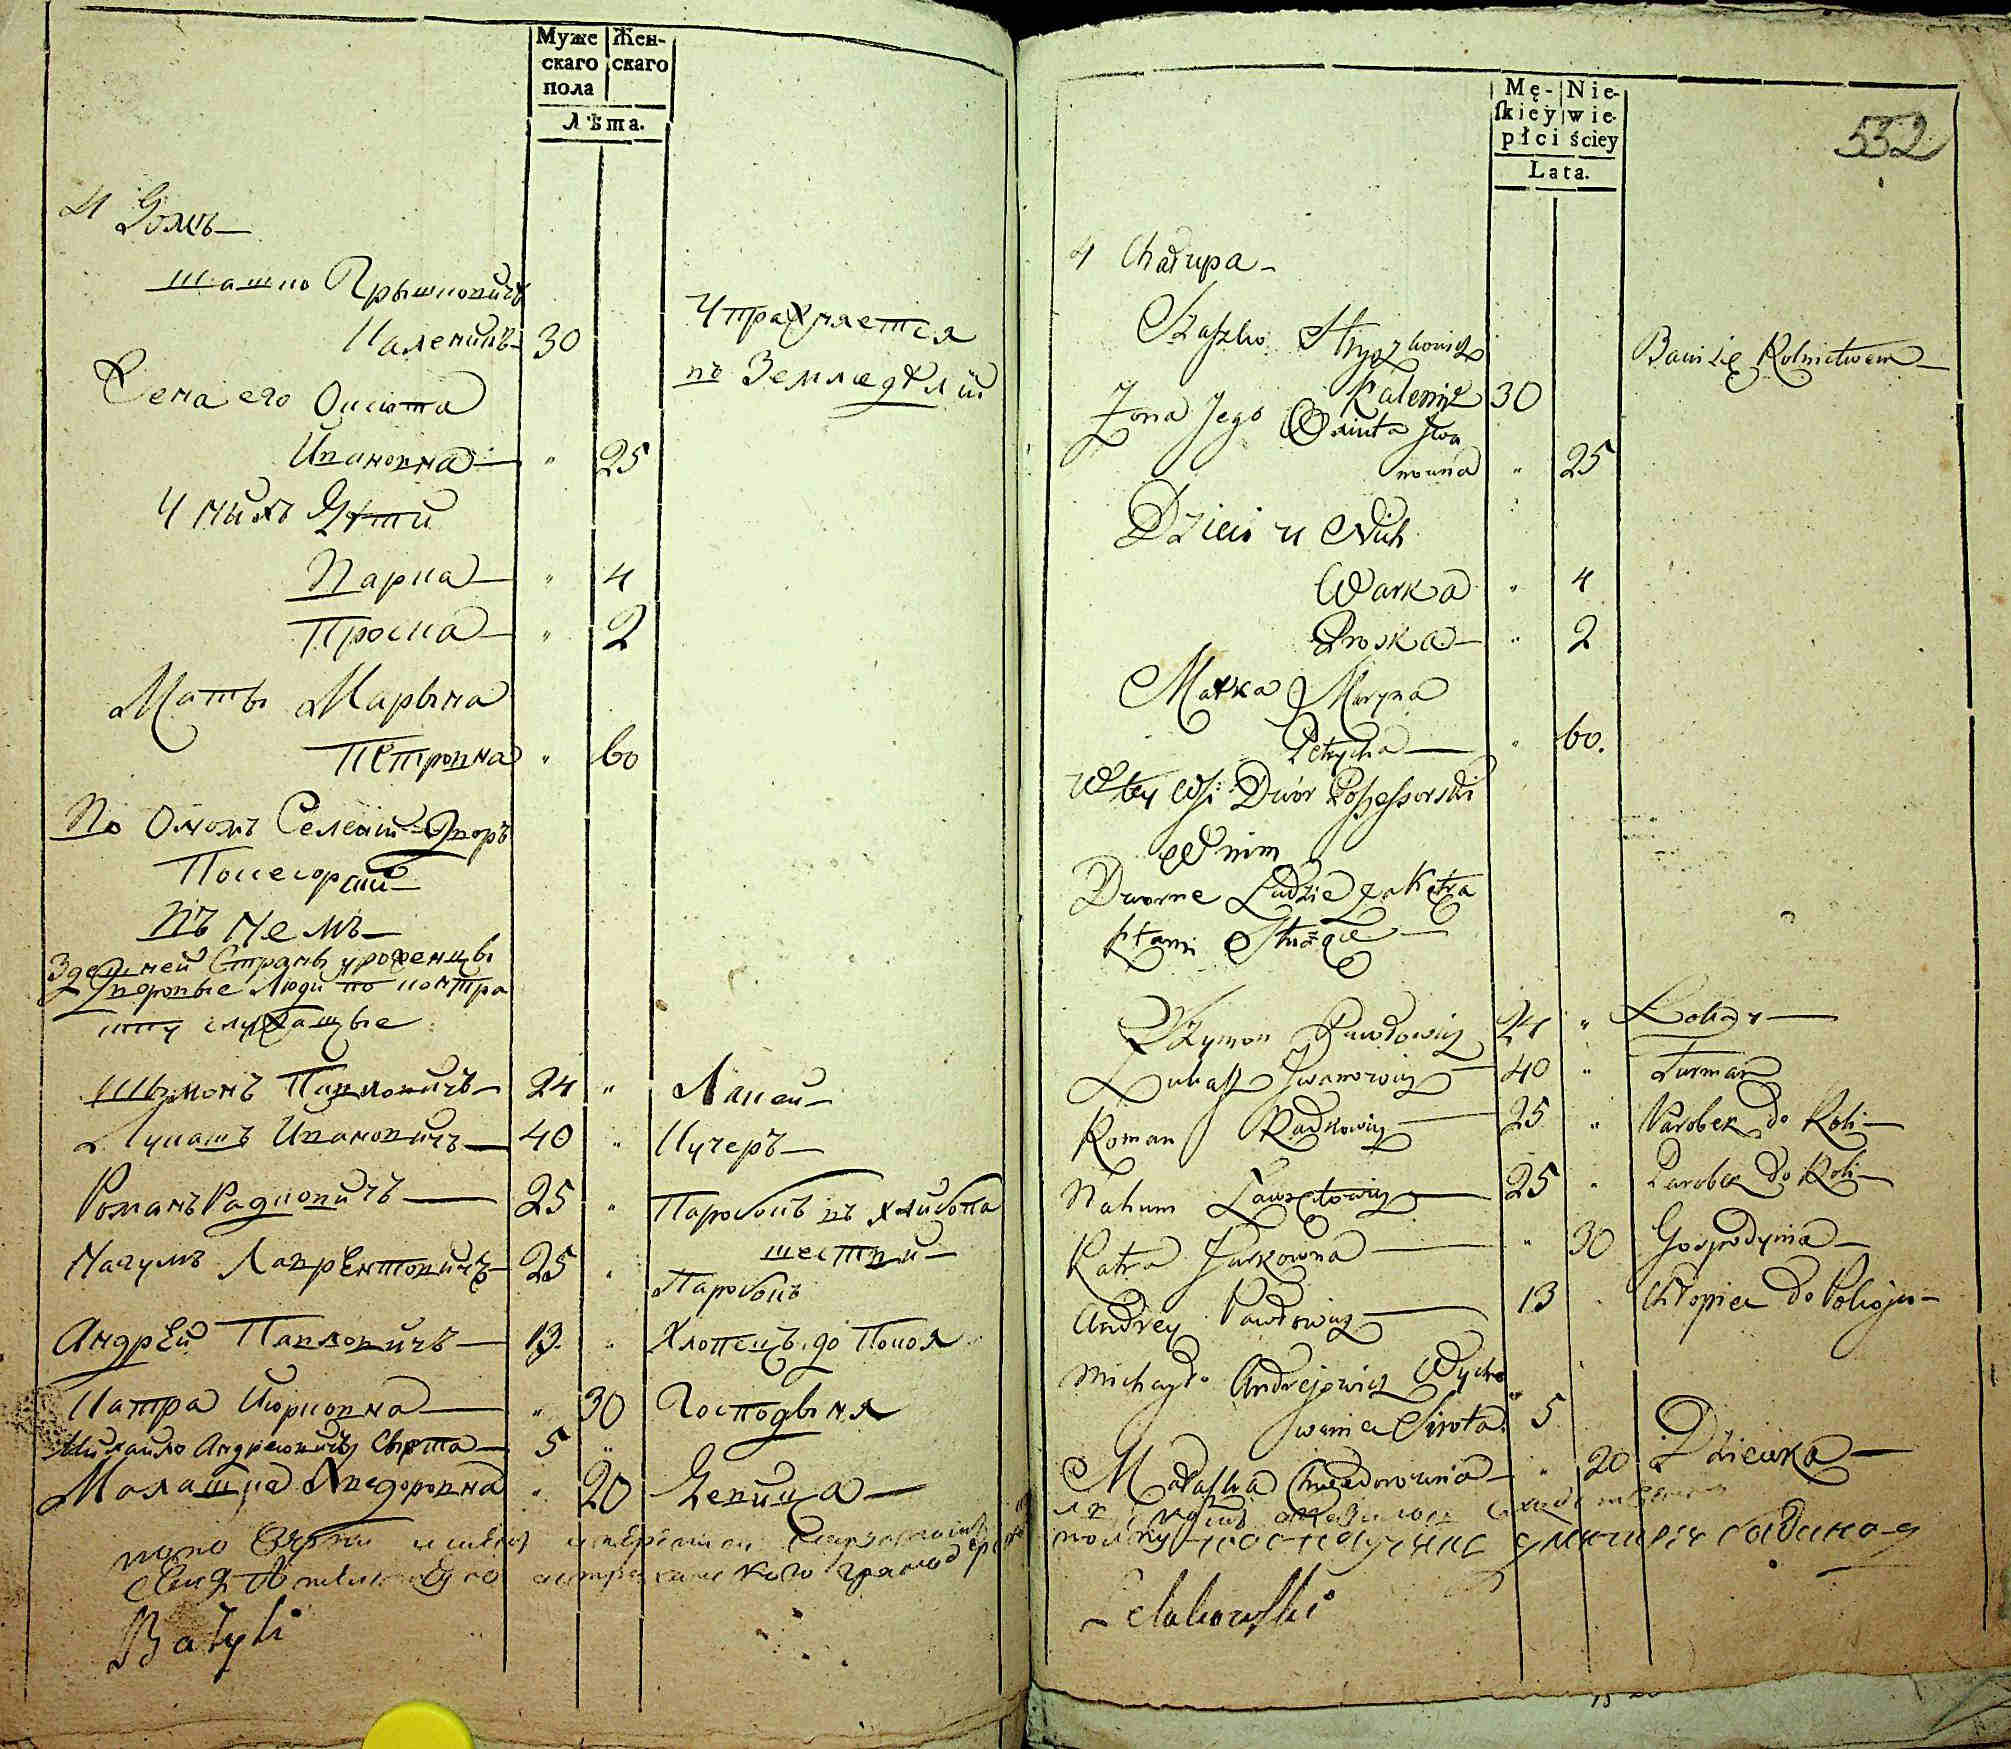 Муже
скаго
пола
Жен-
скаго
Лѣта.
4 Домъ
Сташко Грышковичъ
Каленикъ 30
Упражняется
въ Земледѣлiи
Жена его Оксюта
Ивановна " 25
У нихъ Дѣти
Варка " 4
Проска " 2
Мать Марына
Петровна " 60
Во Ономъ Селенiи Дворъ
Посесорскiй
въ немъ
Здешней Страны уроженцы
Дворовые Люди по контра
кту служащые
Шымонъ Павловичъ 24 " Лакей
Лукашъ Ивановичъ 40 " Кучеръ
Романъ Радковичъ 25 " Паробокъ въ хлибопа
шестви
Нагумъ Лаврентовичъ 25 " Паробокъ
Андрей Павловичъ 13 " Хлопецъ до Покоя
Катра Юрковна " 30 Господыня
Михайло Андреювичъ Сырота 5 "
Малашка Хведоровна " 20 Девица
Bałyki
Mę-
skiey
płci
Nie-
wie-
ściey
Lata.
532
4 Chałupa
Staszko Hryszkowicz
Kalenik 30
Bawi się Rolnictwem
Żona Jego Oxiuta Iwa
nowna " 25
Dzieci u Nich
Warka " 4
Proska " 2
Matka Maryna
Petrycha " 60.
W tey Wsi Dwór Possessorski
W nim
Dworne Ludzie za Kątra
ktami Służące
Szymon Pawłowicz 24 " Lokay
Łukasz Iwanowicz 40 " Furman
Roman Radkowicz 25 " Parobek do Roli
Nahum Ławrętowicz 25 " Parobek do Roli
Katra Jurkowna " 30 Gospodynia
Andrey Pawłowicz 13 " Chłopiec do Pokoju
Michayło Andrejewicz Wycho
waniec Sirota 5
Małaszka Chwedorowna " 20 Dziewka